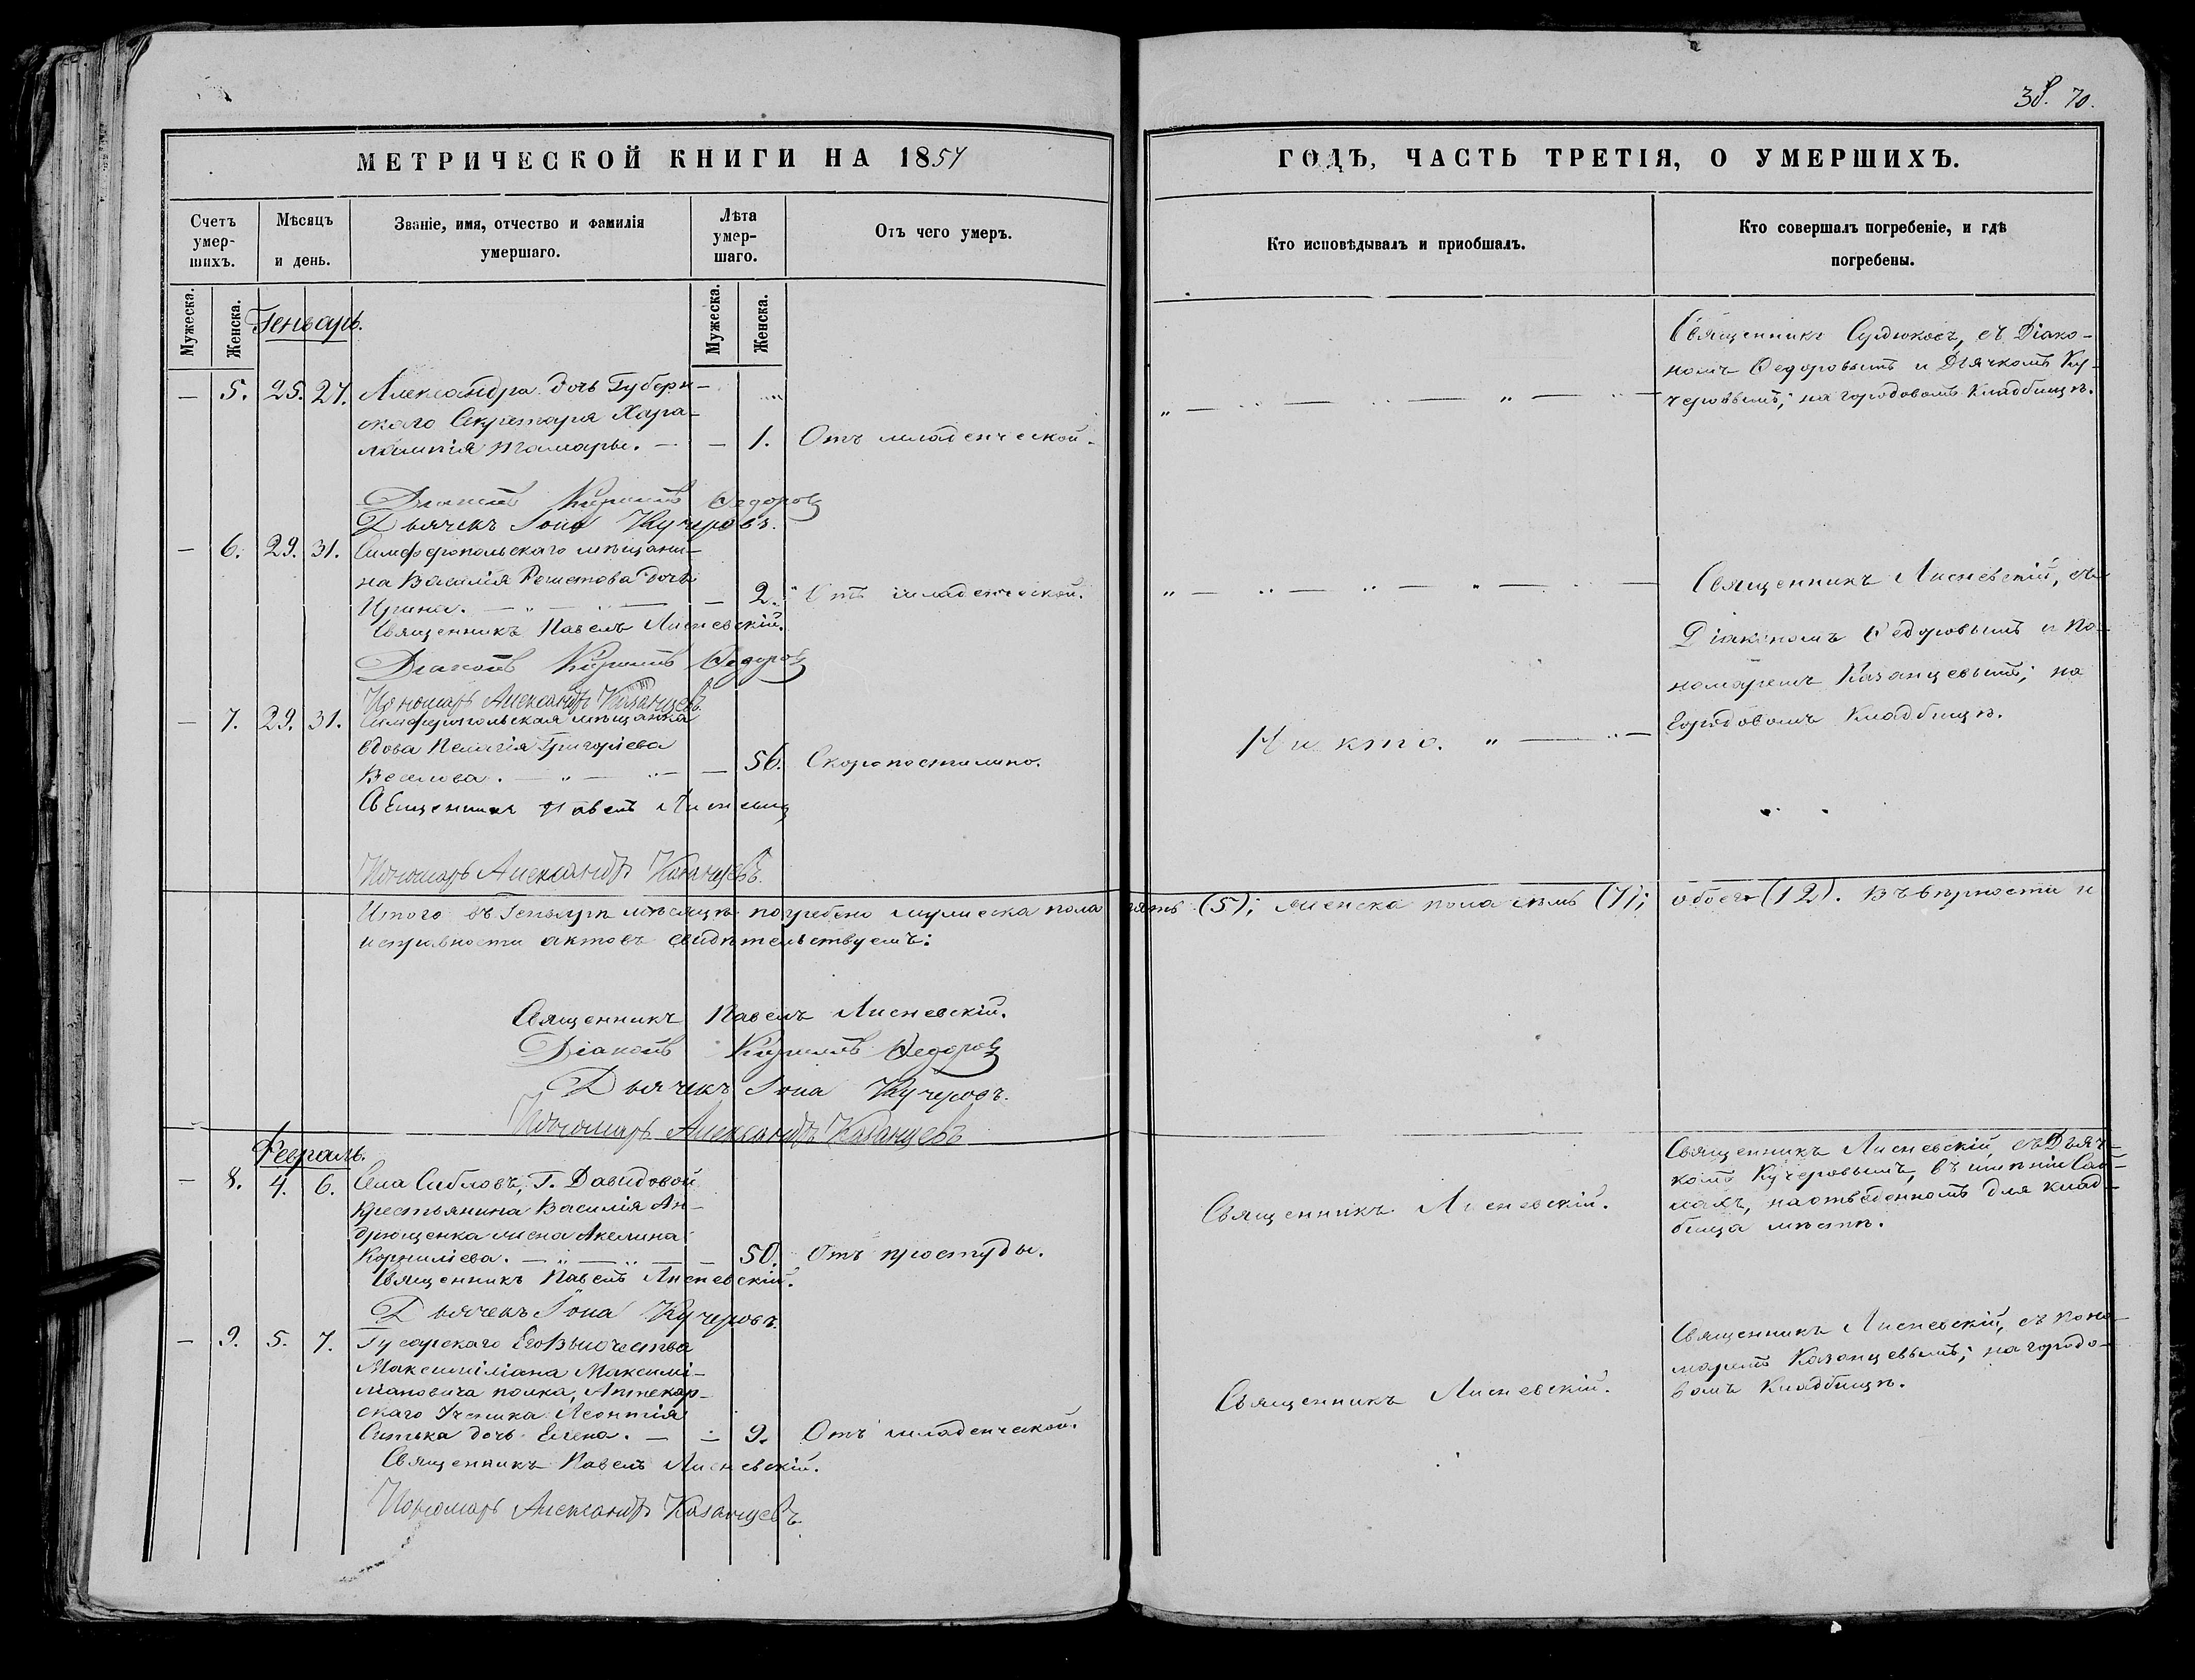 38. 70.
МЕТРИЧЕСКОЙ КНИГИ НА 1854
ГОДЪ, ЧАСТЬ ТРЕТІЯ, О УМЕРШИХЪ.
Счетъ умер-шихъ.
Мѣсяцъ и день.
Званіе, имя, отчество и фамилія умершаго.
Лѣта умер-шаго.
Отъ чего умеръ.
Кто исповѣдывалъ и пріобщалъ.
Кто совершалъ погребеніе, и гдѣ погребены.
Мужеска. Женска.
Мужеска. Женска.
Геньварь.
— 5. 25. 27. Александра дочь Губерн-
скаго Секретаря Хара-
лампія — — 1. Отъ младенческой.
Священникъ Сердюковъ, съ Діако-
номъ Федоровымъ и Дьячкомъ Ку-
черовымъ; на городовомъ Кладбищѣ.
Діаконъ Кириллъ Федоровъ
Дьячекъ Іона Кучеровъ.
— 6. 29. 31. Симферопольскаго мѣщани-
на Василія Решетова дочь
Ирина. — 2. Отъ младенческой.
Священникъ Лисневскій, съ
Діакономъ Федоровымъ и По-
номаремъ Казанцевымъ; на
Городовомъ Кладбищѣ.
Священникъ Павелъ Лисневскій.
Діаконъ Кириллъ Федоровъ
Пономарь Александръ Казанцевъ
— 7. 29. 31. Симферопольская мѣщанка
вдова Пелагія Григоріева
— 56. Скоропостижно.
Никто.
Священникъ Павелъ Лисневскій
Пономарь Александръ Казанцевъ.
Итого въ Генварѣ мѣсяцѣ погребено мужеска пола пять (5); женска пола семь (7); обоего (12). Въ вѣрности и
исправности актовъ свидѣтельствуемъ:
Священникъ Павелъ Лисневскій.
Діаконъ Кириллъ Федоровъ
Дьячекъ Іона Кучеровъ.
Пономарь Александръ Казанцевъ
Февраль.
— 8. 4. 6. Села Сабловъ, Г. Давидовой
крестьянина Василія Ан-
дрющенка жена Акелина
Корниліева. — 50. Отъ простуды.
Священникъ Лисневскій.
Священникъ Лисневскій, съ Дьяч-
комъ Кучеровымъ, въ имѣніи Саб-
лахъ, на отведенномъ для клад-
бища мѣстѣ.
Священникъ Павелъ Лисневскій.
Дьячекъ Іона Кучеровъ.
— 9. 5. 7. Гусарскаго Его Высочества
Максимиліана Максими-
ліановича полка, Аптекар-
скаго Ученика Леонтія
дочь Елена. — 9. Отъ младенческой.
Священникъ Лисневскій.
Священникъ Лисневскій, съ Поно-
маремъ Казанцевымъ; на городо-
вомъ Кладбищѣ.
Священникъ Павелъ Лисневскій.
Пономарь Александръ Казанцевъ.